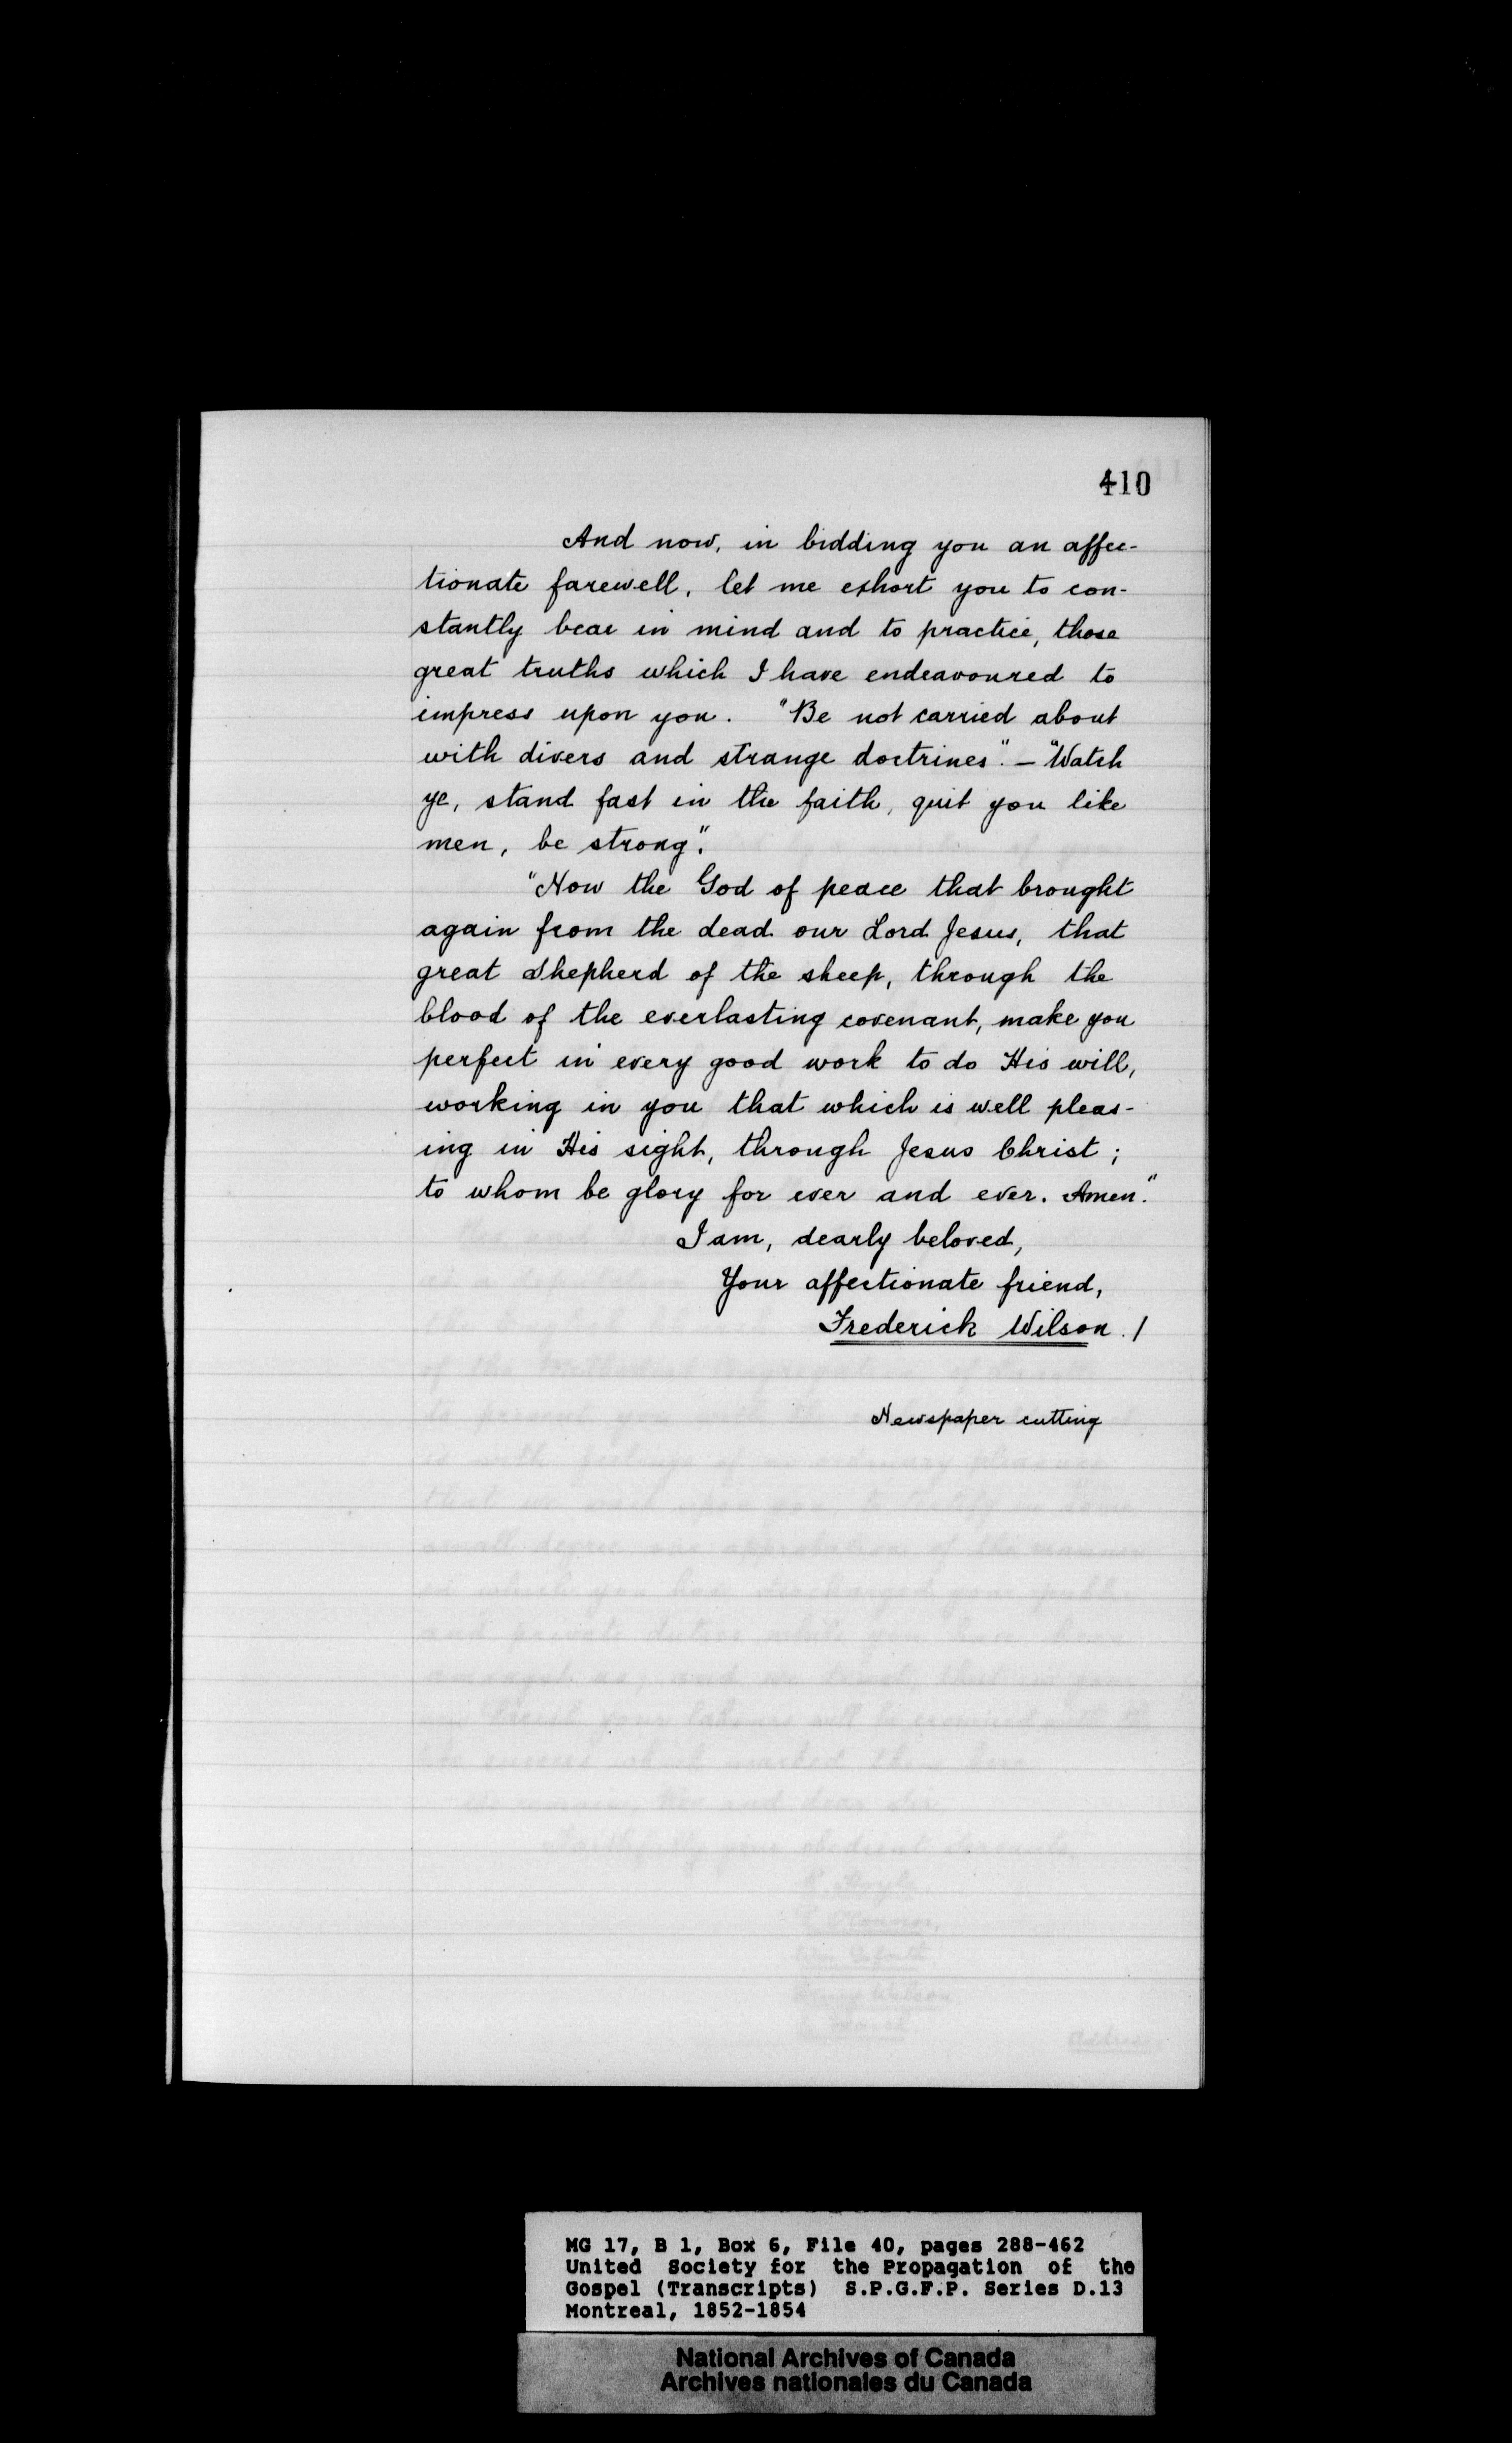 410
And now, in bidding you an affec-
tionate farewell, let me exhort you to con-
stantly bear in mind and to practice, those
great truths which I have endeavoured to
impress upon you. "Be not carried about
with divers and strange doctrines." — "Watch
ye, stand fast in the faith, quit you like
men, be strong."
"Now the God of peace that brought
again from the dead our Lord Jesus, that
great Shepherd of the sheep, through the
blood of the everlasting covenant, make you
perfect in every good work to do His will,
working in you that which is well pleas-
ing in His sight, through Jesus Christ;
to whom be glory for ever and ever. Amen."
I am, dearly beloved,
Your affectionate friend,
Frederick Wilson. /
Newspaper cutting
MG 17, B 1, Box 6, File 40, pages 288-462
United Society for the Propagation of the
Gospel (Transcripts) S.P.G.F.P. Series D.13
Montreal, 1852-1854
National Archives of Canada
Archives nationales du Canada